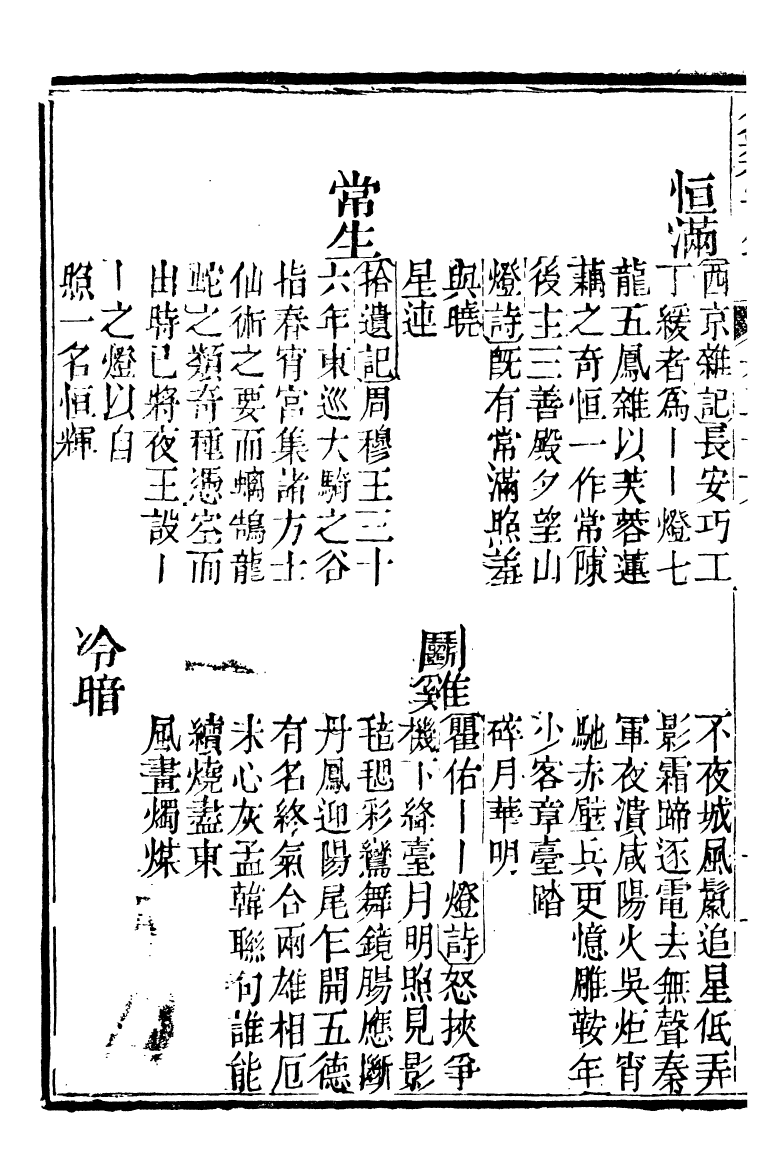 恒滿
西京雜記長安巧工
丁緩者爲丨丨燈七
龍五鳳雜以芙蓉蓮
藕之奇恒一作常陳
後主三善殿夕望山
燈詩旣有常滿照羞
與曉
星連
常生
拾遺記周穆王三十
六年東巡大騎之谷
指春宵宮集諸方士
仙術之要而螭鵠龍
蛇之類奇種憑空而
出時已將夜王設丨
丨之燈以自
照一名恒輝
不夜城風鬣追星低弄
影霜蹄逐電去無聲秦
軍夜潰咸陽火吳炬宵
馳赤壁兵更憶雕鞍年
少客章臺踏
碎月華明
鬭雞
瞿佑丨丨燈詩怒挾爭
機下絳臺月明照見影
毰毸彩鸞舞鏡腸應斷
丹鳳迎陽尾乍開五德
有名終氣合兩雄相厄
未心灰孟韓聯句誰能
續燒盡東
風畫燭煤
冷暗